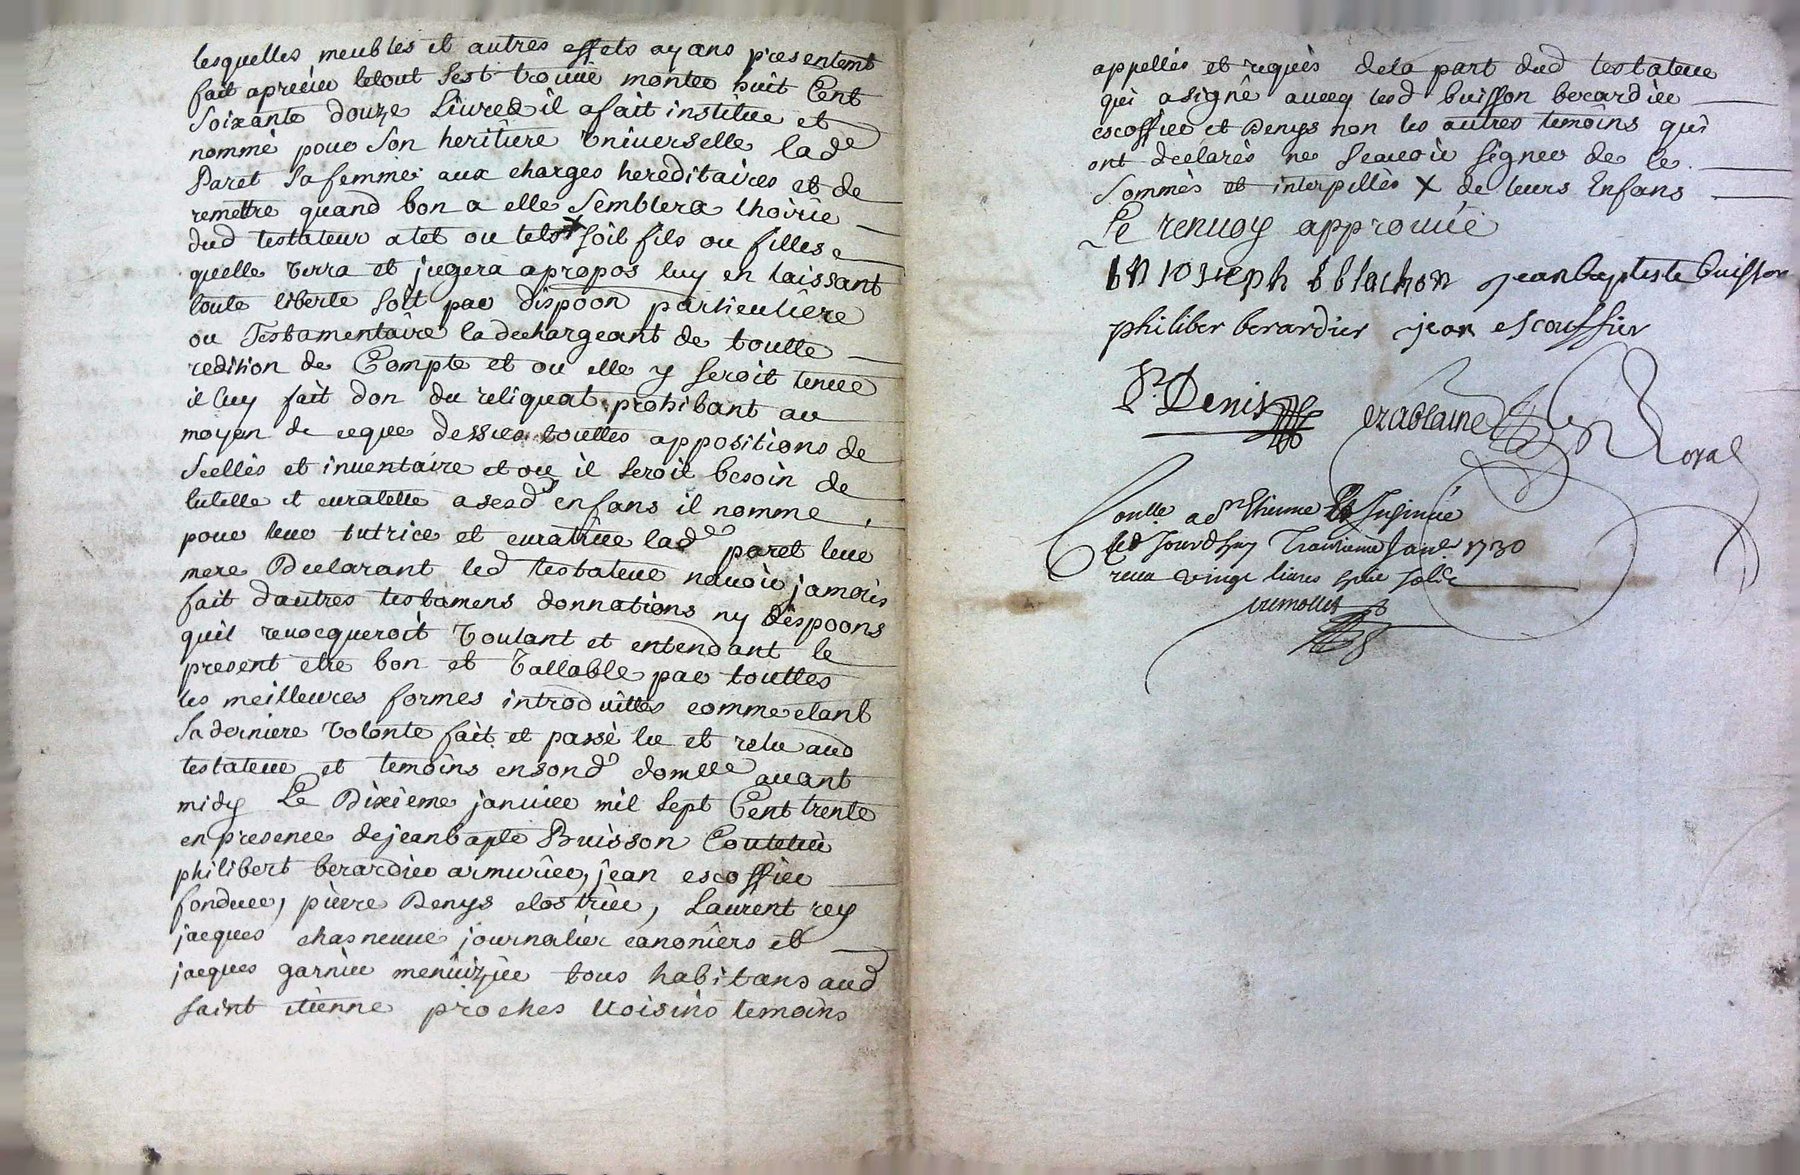 lesquelles meubles et autres effets ayans presentemt
fait aprecier letout sest trouvé monter huit Cent
Soixante douze Livres il a fait instituer et
nommé pour son heritiere Universelle lade
Paret sa femme aux charges hereditaires et de
remettre quand bon a elle Semblera lhoirie
dud testateur atel ou tels x soit fils ou filles
quelle Verra et jugera apropos luy en laissant
toute liberté soit par dispoon particulière
ou Testamentaire la dechargeant de toutte
redition de Compte et ou elle y seroit tenue
il luy fait don du reliquat prohibant au
moyen de ceque dessus touttes appositions de
Scellés et inventaire et ou il seroit besoin de
tutelle et curatelle asesd enfans il nomme
pour leur tutrice et curatrice lade paret leur
mere Declarant led testateur navoir jamais
fait dautres testamens donnations ny dispoons
quil revocqueroit Voulant et entendant le
present etre bon et Vallable par touttes
les meilleures formes introduittes comme etant
sa derniere Volonte fait et passé lu et relu aud
testateur et temoins en sond domlle avant
midy Le Dixieme janvier mil sept Cent trente
en presence de jean bapte Buisson Coutelier
philibert berardier armurier, jean escoffier
fondeur, pierre Denys clostrier, Laurent rey
jacques chasneuve journalier canoniers et
jacques garnier menuizier tous habitans aud
saint etienne proches voisins temoins
appellés et requis dela part dud testateur
qui a signé avecq lesd buisson berardier
escoffier et Denys non les autres temoins qui
ont declarés ne Scavoir signer de ce
Sommés et interpellés x de leurs Enfans
Le renvoy approuvé
joseph blachon jean baptiste buisson
philiber berardier jean escouffier
P. Denis
Royal
a St Etienne
Jourdhuy Janer 1730
vingt livres